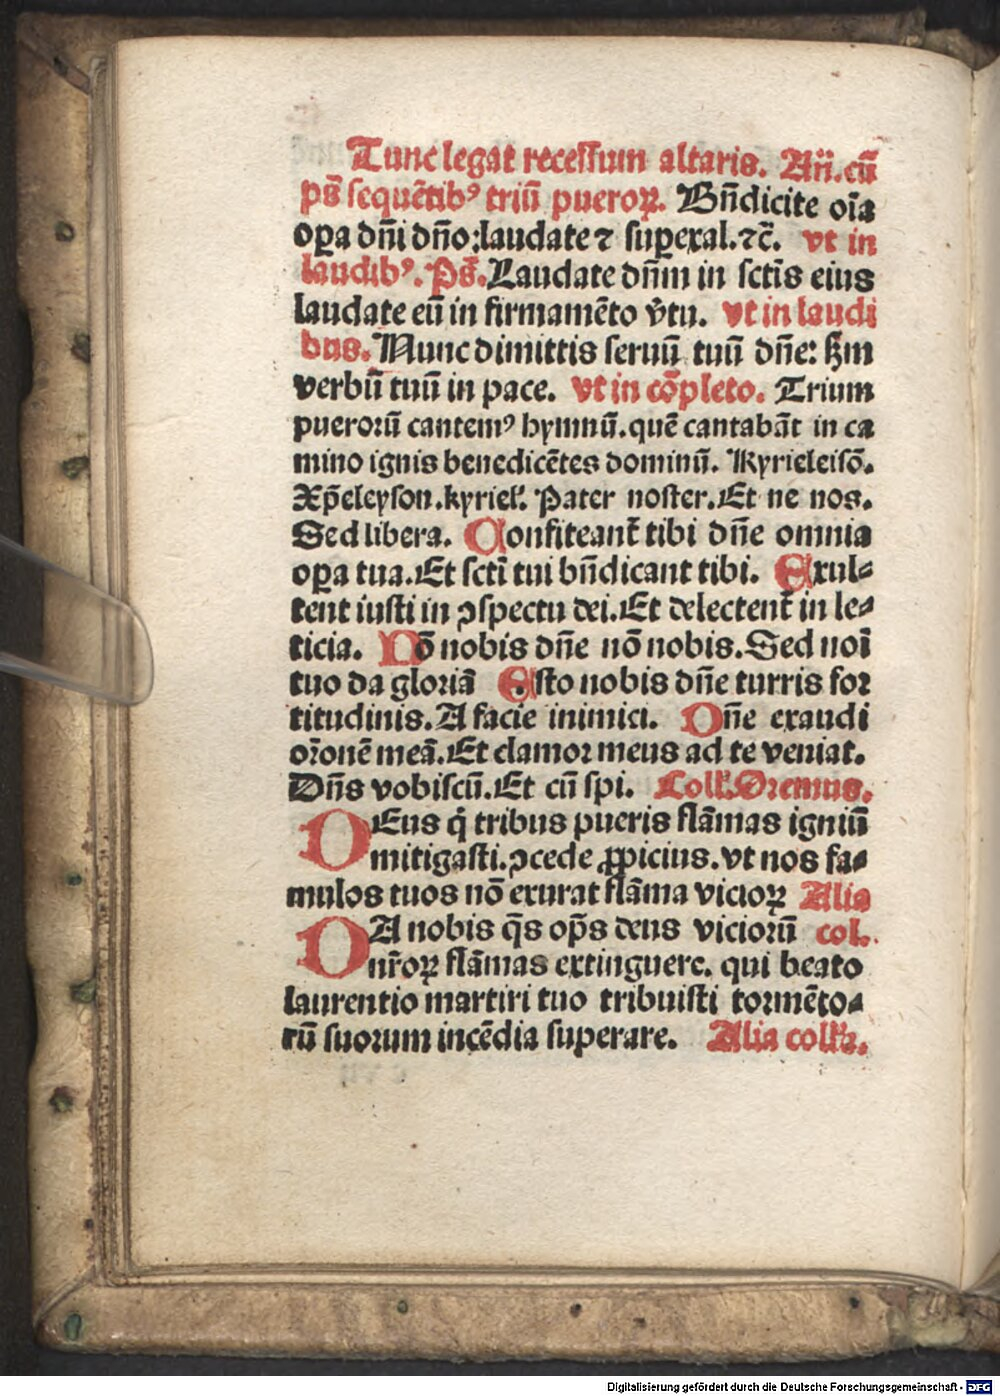 Tunc legat recessum altaris. An̄. cū
ps̄ sequētibꝰ triū pueroꝝ. Bn̄dicite oīa
oꝑa dn̄i dn̄o:laudate ⁊ suꝑexal.⁊c̄. vt in
laudibꝰ. Ps̄. Laudate dn̄m in sctīs eius
laudate eū in firmamēto v̄tu. vt in laudi
bus. Nunc dimittis seruū tuū dn̄e: ẜm
verbū tuū in pace. vt in cōpleto. Trium
puerorū cantemꝰ hymnū.quē cantabāt in ca
mino ignis benedicētes dominū. Kyrieleisō.
Xp̄eleyson.kyriel̓. Pater noster.Et ne nos.
Sed libera. Confiteant̄ tibi dn̄e omnia
oꝑa tua.Et sctī tui bn̄dicant tibi. Exul⸗
tent iusti in ꝯspectu dei.Et delectent̄ in le⸗
ticia. Nō nobis dn̄e nō nobis.Sed noī
tuo da gloriā Esto nobis dn̄e turris for
titudinis.A facie inimici. Dn̄e exaudi
or̄onē meā.Et clamor meus ad te veniat.
Dn̄s vobiscū.Et cū spi. Coll̓. Oremus.
DEus q̄ tribus pueris flāmas igniū
mitigasti.ꝯcede ꝓpicius.vt nos fa⸗
mulos tuos nō exurat flāma vicioꝝ Alia
DA nobis q̄s op̄s deus viciorū col.
nr̄oꝝ flāmas extinguere. qui beato
laurentio martiri tuo tribuisti tormēto⸗
rū suorum incēdia superare. Alia coll̓a.
Digitalisierung gefördert durch die Deutsche Forschungsgemeinschaft - DFG